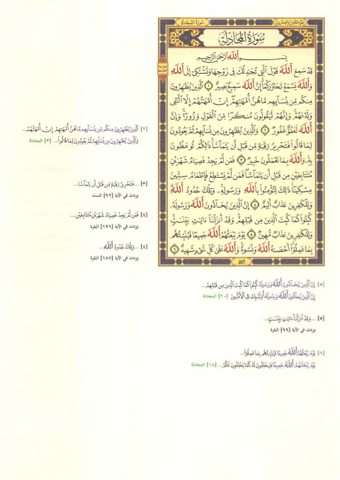 سُورَةُ المُجَادلَةِ
بِسْمِ اللَّهِ الرَّحْمَٰنِ الرَّحِيمِ
قَدْ سَمِعَ اللَّهُ قَوْلَ الَّتِي تُجَادِلُكَ فِي زَوْجِهَا وَتَشْتَكِي إِلَى اللَّهِ
وَاللَّهُ يَسْمَعُ تَحَاوُرَكُمَا إِنَّ اللَّهَ سَمِيعٌ بَصِيرٌ ۝ الَّذِينَ يُظَاهِرُونَ
مِنكُم مِّن نِّسَائِهِم مَّا هُنَّ أُمَّهَاتِهِمْ إِنْ أُمَّهَاتُهُمْ إِلَّا اللَّائِي
وَلَدْنَهُمْ وَإِنَّهُمْ لَيَقُولُونَ مُنكَرًا مِّنَ الْقَوْلِ وَزُورًا وَإِنَّ
اللَّهَ لَعَفُوٌّ غَفُورٌ ۝ وَالَّذِينَ يُظَاهِرُونَ مِن نِّسَائِهِمْ ثُمَّ يَعُودُونَ
لِمَا قَالُوا فَتَحْرِيرُ رَقَبَةٍ مِّن قَبْلِ أَن يَتَمَاسَّا ذَٰلِكُمْ تُوعَظُونَ
بِهِ وَاللَّهُ بِمَا تَعْمَلُونَ خَبِيرٌ ۝ فَمَن لَّمْ يَجِدْ فَصِيَامُ شَهْرَيْنِ
مُتَتَابِعَيْنِ مِن قَبْلِ أَن يَتَمَاسَّا فَمَن لَّمْ يَسْتَطِعْ فَإِطْعَامُ سِتِّينَ
مِسْكِينًا ذَٰلِكَ لِتُؤْمِنُوا بِاللَّهِ وَرَسُولِهِ وَتِلْكَ حُدُودُ اللَّهِ
وَلِلْكَافِرِينَ عَذَابٌ أَلِيمٌ ۝ إِنَّ الَّذِينَ يُحَادُّونَ اللَّهَ وَرَسُولَهُ
كُبِتُوا كَمَا كُبِتَ الَّذِينَ مِن قَبْلِهِمْ وَقَدْ أَنزَلْنَا آيَاتٍ بَيِّنَاتٍ
وَلِلْكَافِرِينَ عَذَابٌ مُّهِينٌ ۝ يَوْمَ يَبْعَثُهُمُ اللَّهُ جَمِيعًا فَيُنَبِّئُهُم
بِمَا عَمِلُوا أَحْصَاهُ اللَّهُ وَنَسُوهُ وَاللَّهُ عَلَىٰ كُلِّ شَيْءٍ شَهِيدٌ ۝
[٢] الَّذِينَ يُظَاهِرُونَ مِنكُم مِّن نِّسَائِهِم مَّا هُنَّ أُمَّهَاتِهِمْ إِنْ أُمَّهَاتُهُمْ...
وَالَّذِينَ يُظَاهِرُونَ مِن نِّسَائِهِمْ ثُمَّ يَعُودُونَ لِمَا قَالُوا... [٣] المجادلة
[٣] ... فَتَحْرِيرُ رَقَبَةٍ مِّن قَبْلِ أَن يَتَمَاسَّا...
وردت في الآية [٩٢] النساء
[٤] فَمَن لَّمْ يَجِدْ فَصِيَامُ شَهْرَيْنِ مُتَتَابِعَيْنِ...
وردت في الآية [١٩٦] البقرة
[٤] ... وَتِلْكَ حُدُودُ اللَّهِ...
وردت في الآية [١٨٧] البقرة
[٥] إِنَّ الَّذِينَ يُحَادُّونَ اللَّهَ وَرَسُولَهُ كُبِتُوا كَمَا كُبِتَ الَّذِينَ مِن قَبْلِهِمْ...
إِنَّ الَّذِينَ يُحَادُّونَ اللَّهَ وَرَسُولَهُ أُولَٰئِكَ فِي الْأَذَلِّينَ [٢٠] المجادلة
[٥] ... وَقَدْ أَنزَلْنَا آيَاتٍ بَيِّنَاتٍ...
وردت في الآية [٩٩] البقرة
[٦] يَوْمَ يَبْعَثُهُمُ اللَّهُ جَمِيعًا فَيُنَبِّئُهُم بِمَا عَمِلُوا...
يَوْمَ يَبْعَثُهُمُ اللَّهُ جَمِيعًا فَيَحْلِفُونَ لَهُ كَمَا يَحْلِفُونَ لَكُمْ... [١٨] المجادلة